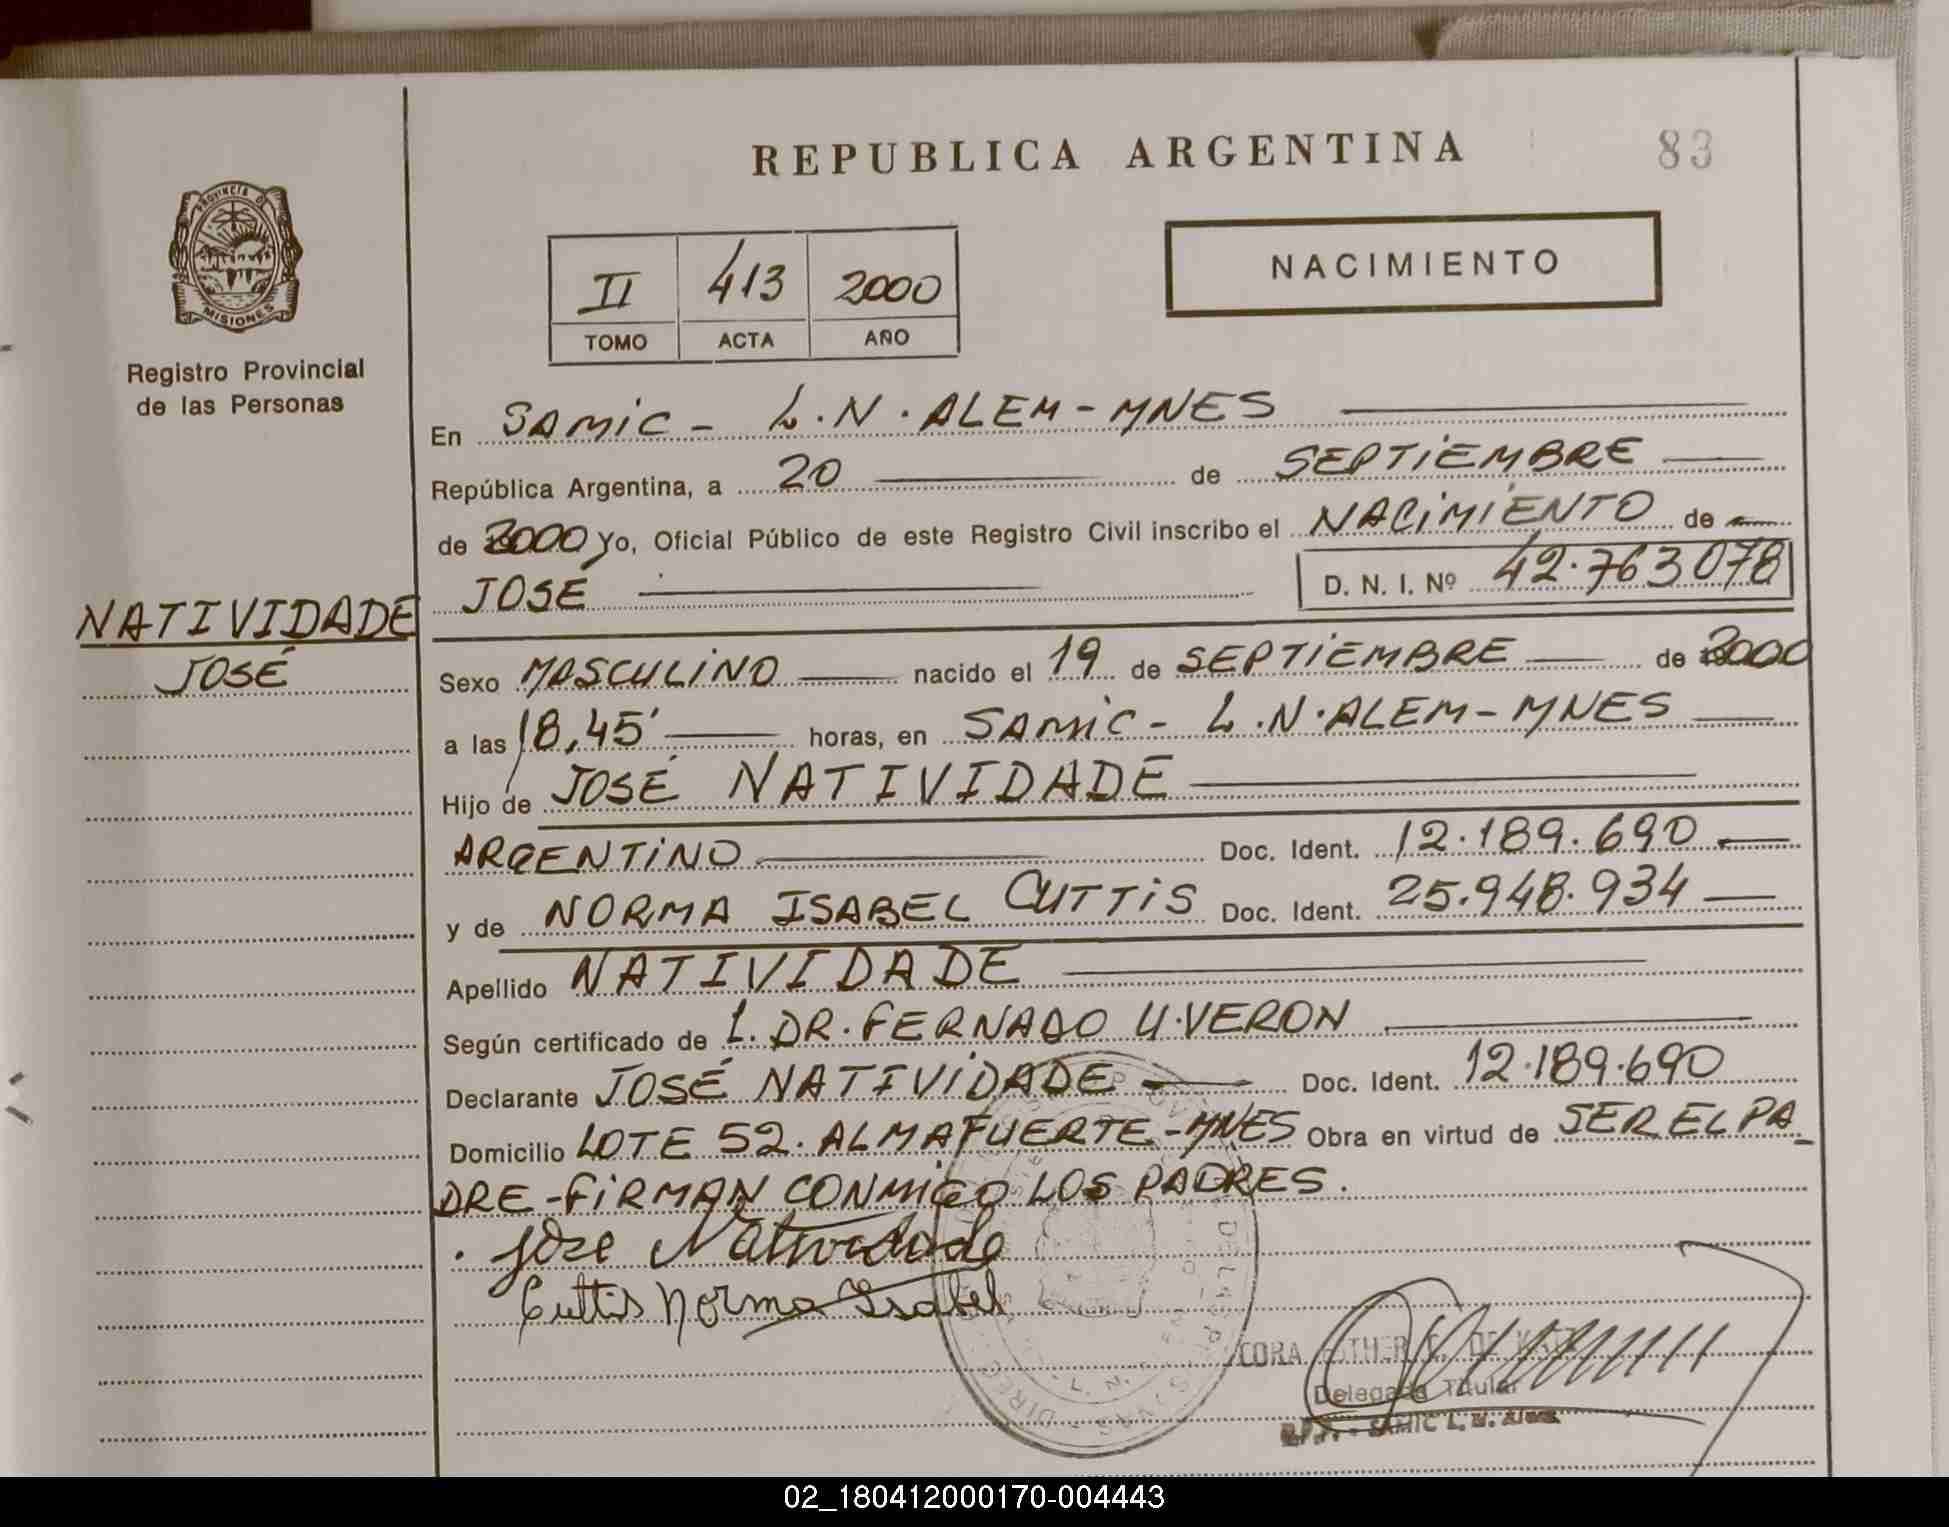 REPUBLICA ARGENTINA
83
PROVINCIA DE
MISIONES
Registro Provincial
de las Personas
II 413 2000
TOMO ACTA AÑO
NACIMIENTO
En SAMIC - L.N. ALEM - MNES
República Argentina, a 20 de SEPTIEMBRE
de 2000 Yo, Oficial Público de este Registro Civil inscribo el NACIMIENTO de
JOSÉ D. N. I. Nº 42.763078
NATIVIDADE
JOSÉ
Sexo MASCULINO nacido el 19 de SEPTIEMBRE de 2000
a las 18,45' horas, en SAMIC - L.N. ALEM - MNES
Hijo de JOSÉ NATIVIDADE
ARGENTINO Doc. Ident. 12.189.690
y de NORMA ISABEL CUTTIS Doc. Ident. 25.948.934
Apellido NATIVIDADE
Según certificado de L. DR. FERNADO U. VERON
Declarante JOSÉ NATIVIDADE Doc. Ident. 12.189.690
Domicilio LOTE 52. ALMAFUERTE - MNES Obra en virtud de SER EL PA
DRE - FIRMAN CONMIGO LOS PADRES.
Jose Natividade
Cuttis Norma Isabel
CORA ESTHER
Delegada Titular
SAMIC L. N. Alem
02_180412000170-004443